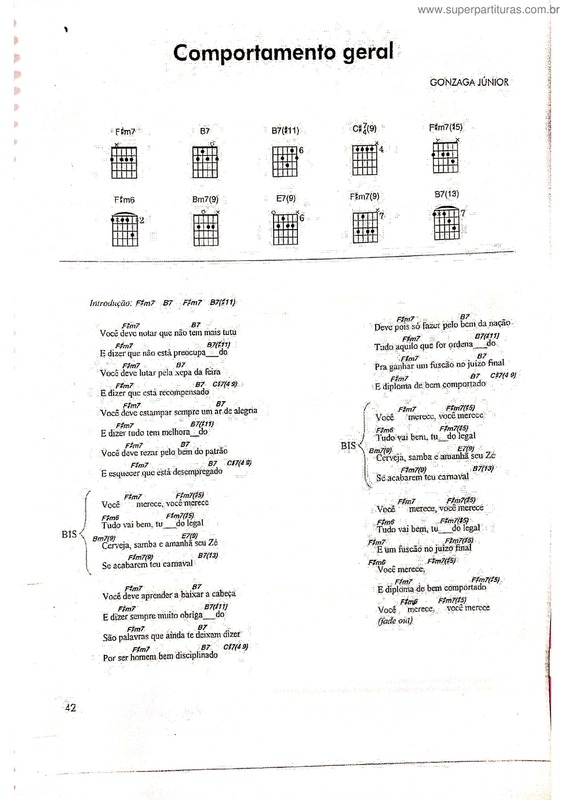 www.superpartituras.com.br
Comportamento geral
GONZAGA JÚNIOR
F♯m7 B7 B7(♯11) C♯7/4(9) F♯m7(♯5)
6 4
F♯m6 Bm7(9) E7(9) F♯m7(9) B7(13)
2 6 7 7
Introdução: F♯m7 B7 F♯m7 B7(♯11)
F♯m7 B7
Você deve notar que não tem mais tutu
F♯m7 B7(♯11)
E dizer que não está preocupa___do
F♯m7 B7
Você deve lutar pela xepa da feira
F♯m7 B7 C♯7(4 9)
E dizer que está recompensado
F♯m7 B7
Você deve estampar sempre um ar de alegria
F♯m7 B7(♯11)
E dizer tudo tem melhora__do
F♯m7 B7
Você deve rezar pelo bem do patrão
F♯m7 B7 C♯7(4 9)
E esquecer que está desempregado
BIS
F♯m7 F♯m7(♯5)
Você merece, você merece
F♯m6 F♯m7(♯5)
Tudo vai bem, tu___do legal
Bm7(9) E7(9)
Cerveja, samba e amanhã seu Zé
F♯m7(9) B7(13)
Se acabarem teu carnaval
F♯m7 B7
Você deve aprender a baixar a cabeça
F♯m7 B7(♯11)
E dizer sempre muito obriga___do
F♯m7 B7
São palavras que ainda te deixam dizer
F♯m7 B7 C♯7(4 9)
Por ser homem bem disciplinado
F♯m7 B7
Deve pois só fazer pelo bem da nação
F♯m7 B7(♯11)
Tudo aquilo que for ordena___do
F♯m7 B7
Pra ganhar um fuscão no juízo final
F♯m7 B7 C♯7(4 9)
E diploma de bem comportado
BIS
F♯m7 F♯m7(♯5)
Você merece, você merece
F♯m6 F♯m7(♯5)
Tudo vai bem, tu__do legal
Bm7(9) E7(9)
Cerveja, samba e amanhã seu Zé
F♯m7(9) B7(13)
Se acabarem teu carnaval
F♯m7 F♯m7(♯5)
Você merece, você merece
F♯m6 F♯m7(♯5)
Tudo vai bem, tu___do legal
F♯m7 F♯m7(♯5)
E um fuscão no juízo final
F♯m6 F♯m7(♯5)
Você merece,
F♯m7 F♯m7(♯5)
E diploma de bem comportado
F♯m6 F♯m7(♯5)
Você merece, você merece
(fade out)
42